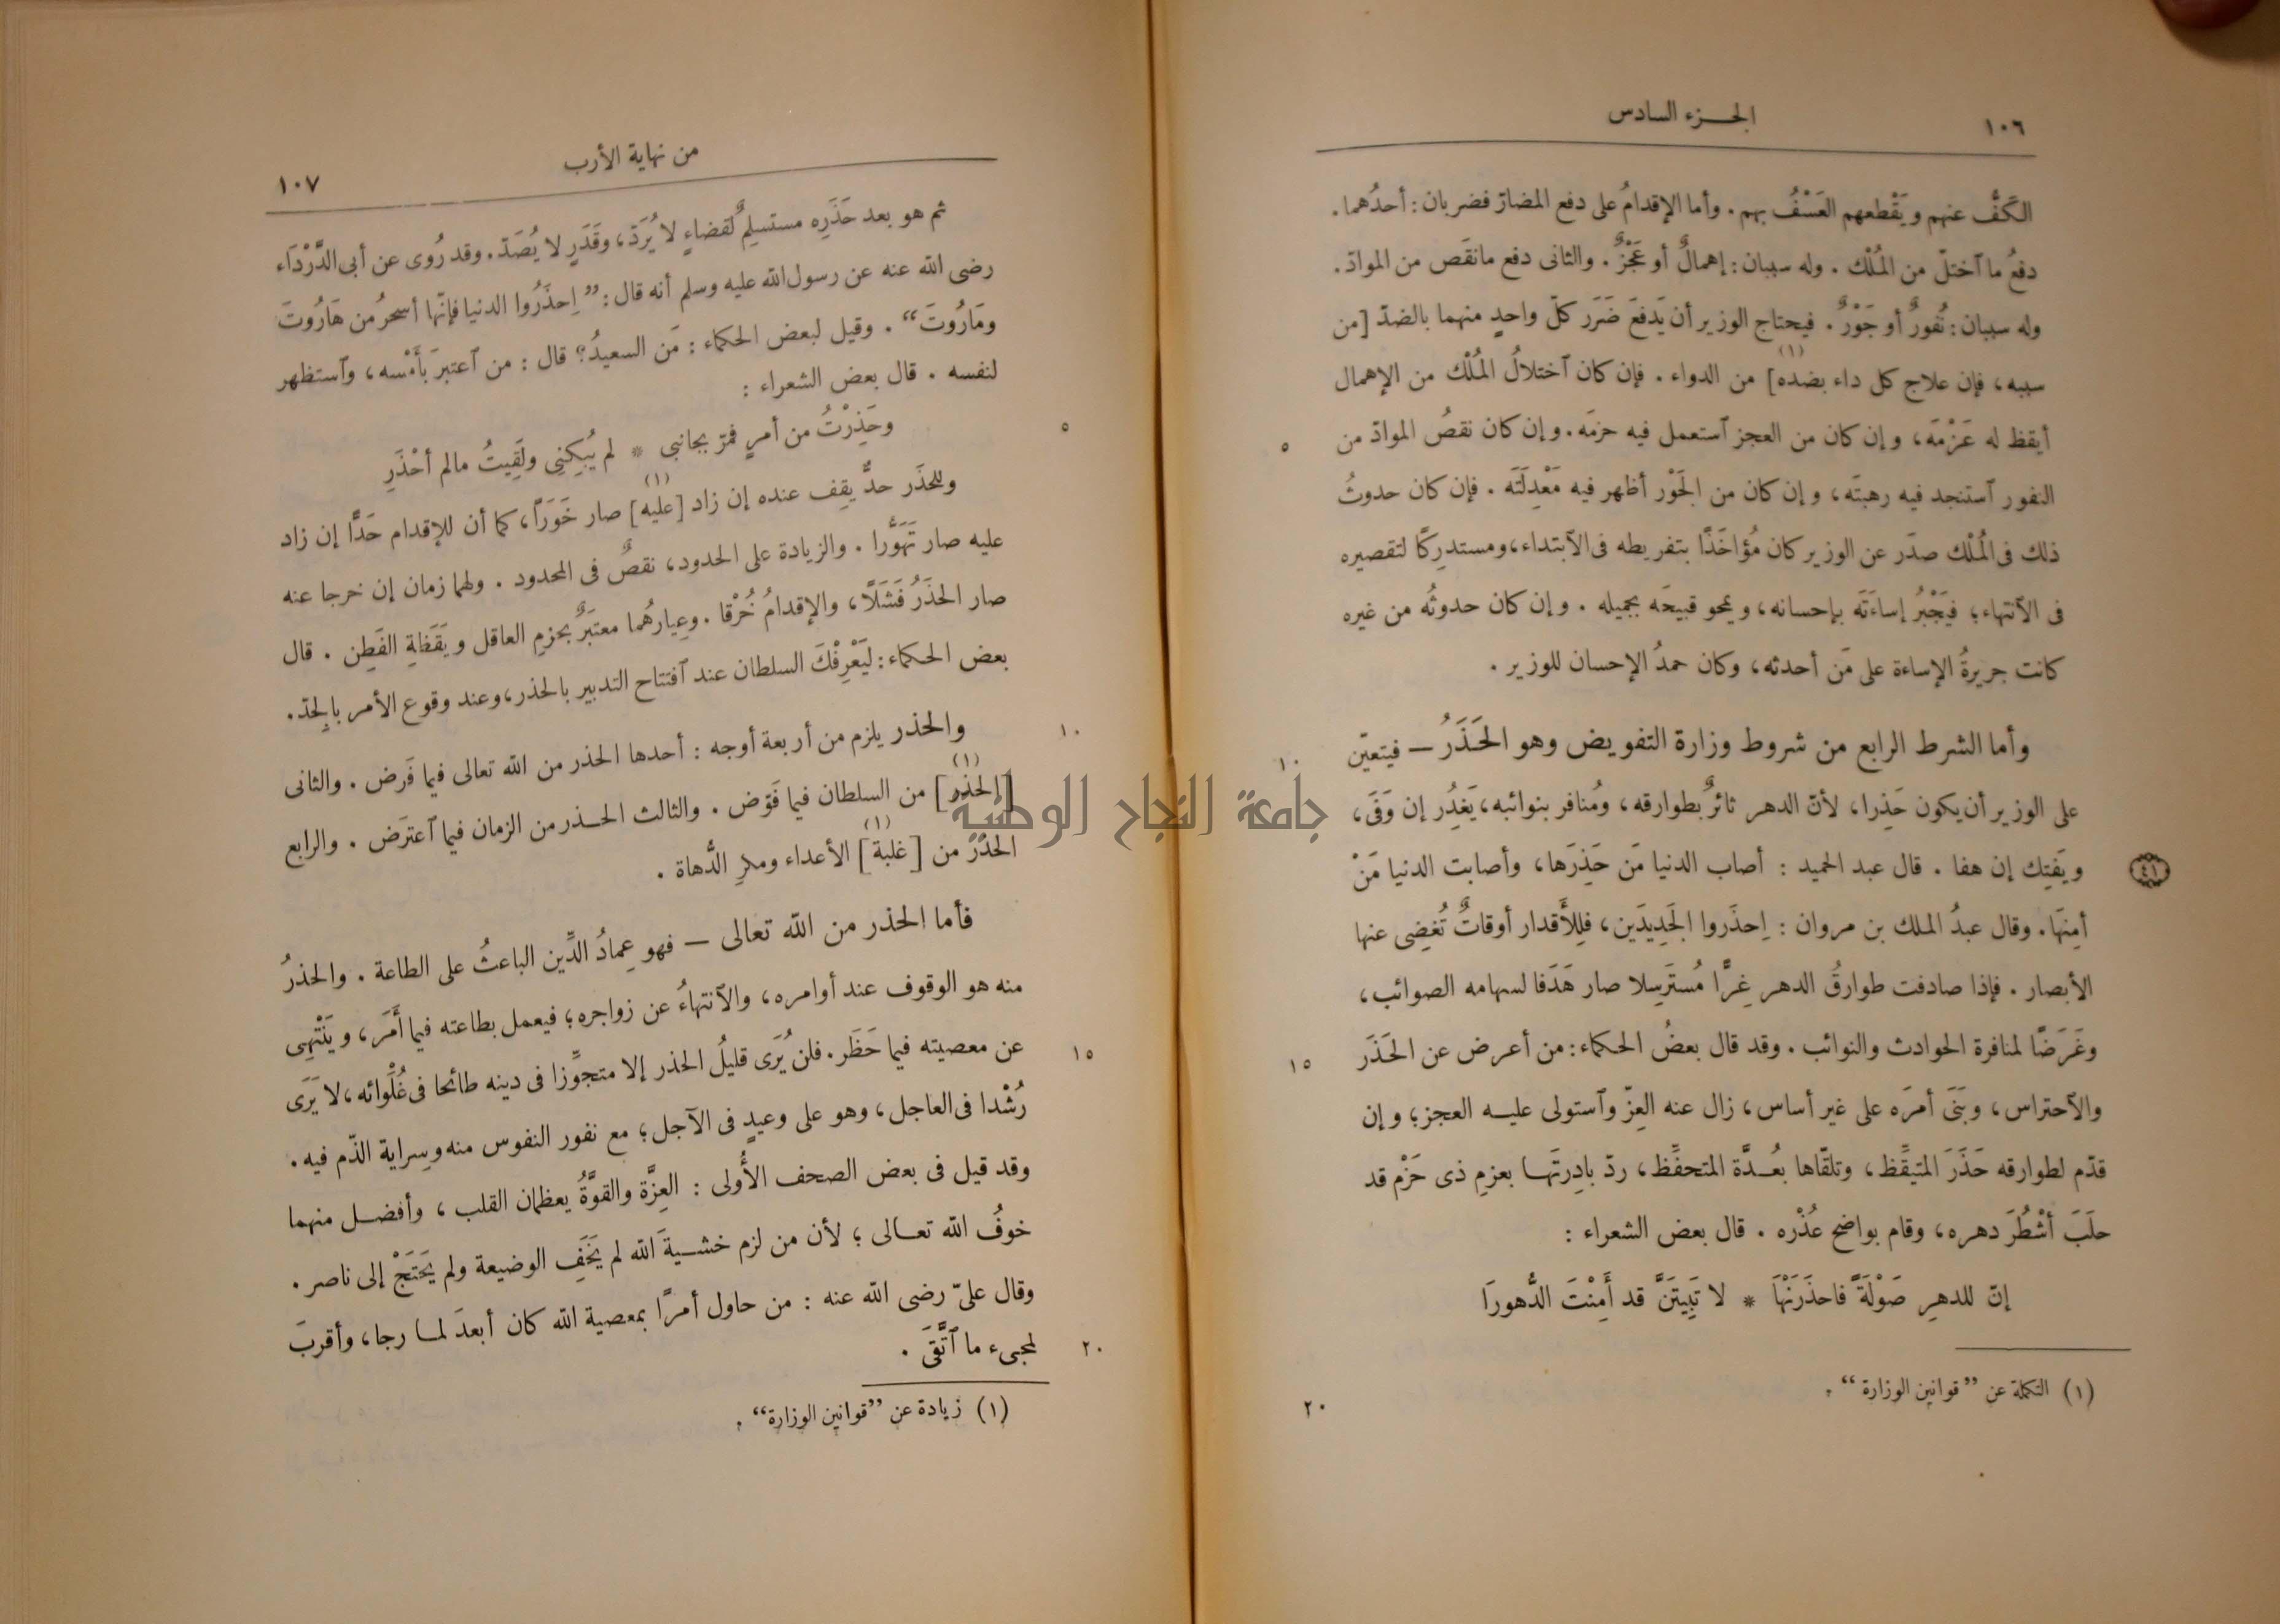 ١٠٦
الجزء السادس
الكَفُّ عنهم ويَقْطعهم العَسْفُ بهم. وأما الإقدامُ على دفع المضارّ فضربان: أحدُهما.
دفعُ ما آختلّ من المُلْك. وله سببان: إهمالٌ أو عَجْزٌ. والثانى دفع ما نقَص من الموادّ.
وله سببان: نُفورٌ أو جَوْرٌ. فيحتاج الوزير أن يَدفعَ ضَرَر كلّ واحدٍ منهما بالضدّ [من
سببه، فإن علاج كل داء بضده](١) من الدواء. فإن كان آختلالُ المُلْك من الإهمال
أيقظ له عَزْمَه، وإن كان من العجز آستعمل فيه حزمَه. وإن كان نقصُ الموادّ من
٥
النفور آستنجد فيه رهبتَه، وإن كان من الجَوْر أظهر فيه مَعْدِلَتَه. فإن كان حدوثُ
ذلك فى المُلْك صدَر عن الوزير كان مُؤاخَذًا بتفريطه فى الآبتداء، ومستدرِكًا لتقصيره
فى الآنتهاء؛ فيَجْبُرُ إساءَتَه بإحسانه، ويمحو قبيحَه بجميله. وإن كان حدوثُه من غيره
كانت جريرةُ الإساءة على مَن أحدثه، وكان حمدُ الإحسان للوزير.
وأما الشرط الرابع من شروط وزارة التفويض وهو الحَذَرُ — فيتعيّن
١٠
على الوزير أن يكون حَذِرا، لأنّ الدهر ثائرٌ بطوارقه، ومُنافر بنوائبه، يَغدِر إن وَفَى،
ويَفتِك إن هفا. قال عبد الحميد: أصاب الدنيا مَن حَذِرَها، وأصابت الدنيا مَنْ
٤١
أمِنَها. وقال عبدُ الملك بن مروان: اِحذَروا الجَدِيدَين، فلِلأَقدار أوقاتٌ تُغضِى عنها
الأبصار. فإذا صادفت طوارقُ الدهر غِرًّا مُستَرسِلا صار هَدَفا لسهامه الصوائب،
وغَرَضًا لمنافرة الحوادث والنوائب. وقد قال بعضُ الحكماء: من أعرض عن الحَذَر
١٥
والآحتراس، وبَنَى أمرَه على غير أساس، زال عنه العِزّ وآستولى عليه العجز؛ وإن
قدّم لطوارقه حَذَرَ المتيقِّظ، وتلقّاها بعُدَّة المتحفِّظ، ردّ بادِرتَها بعزمِ ذى حَزْم قد
حلَبَ أشْطُرَ دهره، وقام بواضح عُذْره. قال بعض الشعراء:
إنّ للدهرِ صَوْلَةً فاحذَرَنْها * لا تَبِيتَنَّ قد أَمِنْتَ الدُّهورَا
(١) التكملة عن ”قوانين الوزارة“.
٢٠
١٠٧
من نهاية الأرب
ثم هو بعد حَذَرِه مستسلِمٌ لقضاءٍ لا يُرَدّ، وقَدَرٍ لا يُصَدّ. وقد رُوى عن أبى الدَّرْدَاء
رضى الله عنه عن رسول الله عليه وسلم أنه قال: ”اِحذَرُوا الدنيا فإنّها أسحرُ من هَارُوتَ
ومَارُوتَ“. وقيل لبعض الحكماء: مَن السعيدُ؟ قال: من آعتبرَ بأَمْسه، وآستظهر
لنفسه. قال بعض الشعراء:
وحَذِرْتُ من أمرٍ فمرّ بجانبى * لم يُبكِنِى ولَقِيتُ مالم أحْذَرِ
٥
وللحذَر حدٌّ يقِف عنده إن زاد [عليه](١) صار خَوَرًا، كما أن للإقدام حَدًّا إن زاد
عليه صار تَهَوُّرا. والزيادة على الحدود، نقصٌ فى المحدود. ولهما زمان إن خرجا عنه
صار الحذَرُ فَشَلًا، والإقدامُ خُرْقا. وعِيارهُما معتبَرٌ بحزمِ العاقل ويَقَظةِ الفَطِن. قال
بعض الحكماء: لَيَعْرِفْكَ السلطان عند آفتتاح التدبير بالحذر، وعند وقوع الأمر بالِجدّ.
والحذر يلزم من أربعة أوجه: أحدها الحذر من الله تعالى فيما فَرض. والثانى
١٠
[الحَذَر](١) من السلطان فيما فَوّض. والثالث الحذر من الزمان فيما آعترَض. والرابع
الحَذَرُ من [غلبة](١) الأعداء ومكرِ الدُّهاة.
فأما الحذر من الله تعالى — فهو عِمادُ الدِّين الباعثُ على الطاعة. والحذرُ
منه هو الوقوف عند أوامره، والآنتهاءُ عن زواجره؛ فيعمل بطاعته فيما أَمَر، ويَنْتهِى
عن معصيته فيما حَظَر. فلن يُرَى قليلُ الحذر إلا متجوِّزا فى دينه طائحا فى غُلَوائه، لا يَرَى
١٥
رُشْدا فى العاجل، وهو على وعيدٍ فى الآجل؛ مع نفور النفوس منه وسِراية الذّم فيه.
وقد قيل فى بعض الصحف الأُولى: العِزَّة والقوَّةُ يعظمان القلب، وأفضل منهما
خوفُ الله تعالى؛ لأن من لزم خشيةَ الله لم يَخَفِ الوضيعة ولم يَحْتَجْ إلى ناصر.
وقال علىّ رضى الله عنه: من حاول أمرًا بمعصية الله كان أبعدَ لما رجا، وأقربَ
لمجىء ما آتَّقَى.
٢٠
(١) زيادة عن ”قوانين الوزارة“.
جامعة النجاح الوطنية